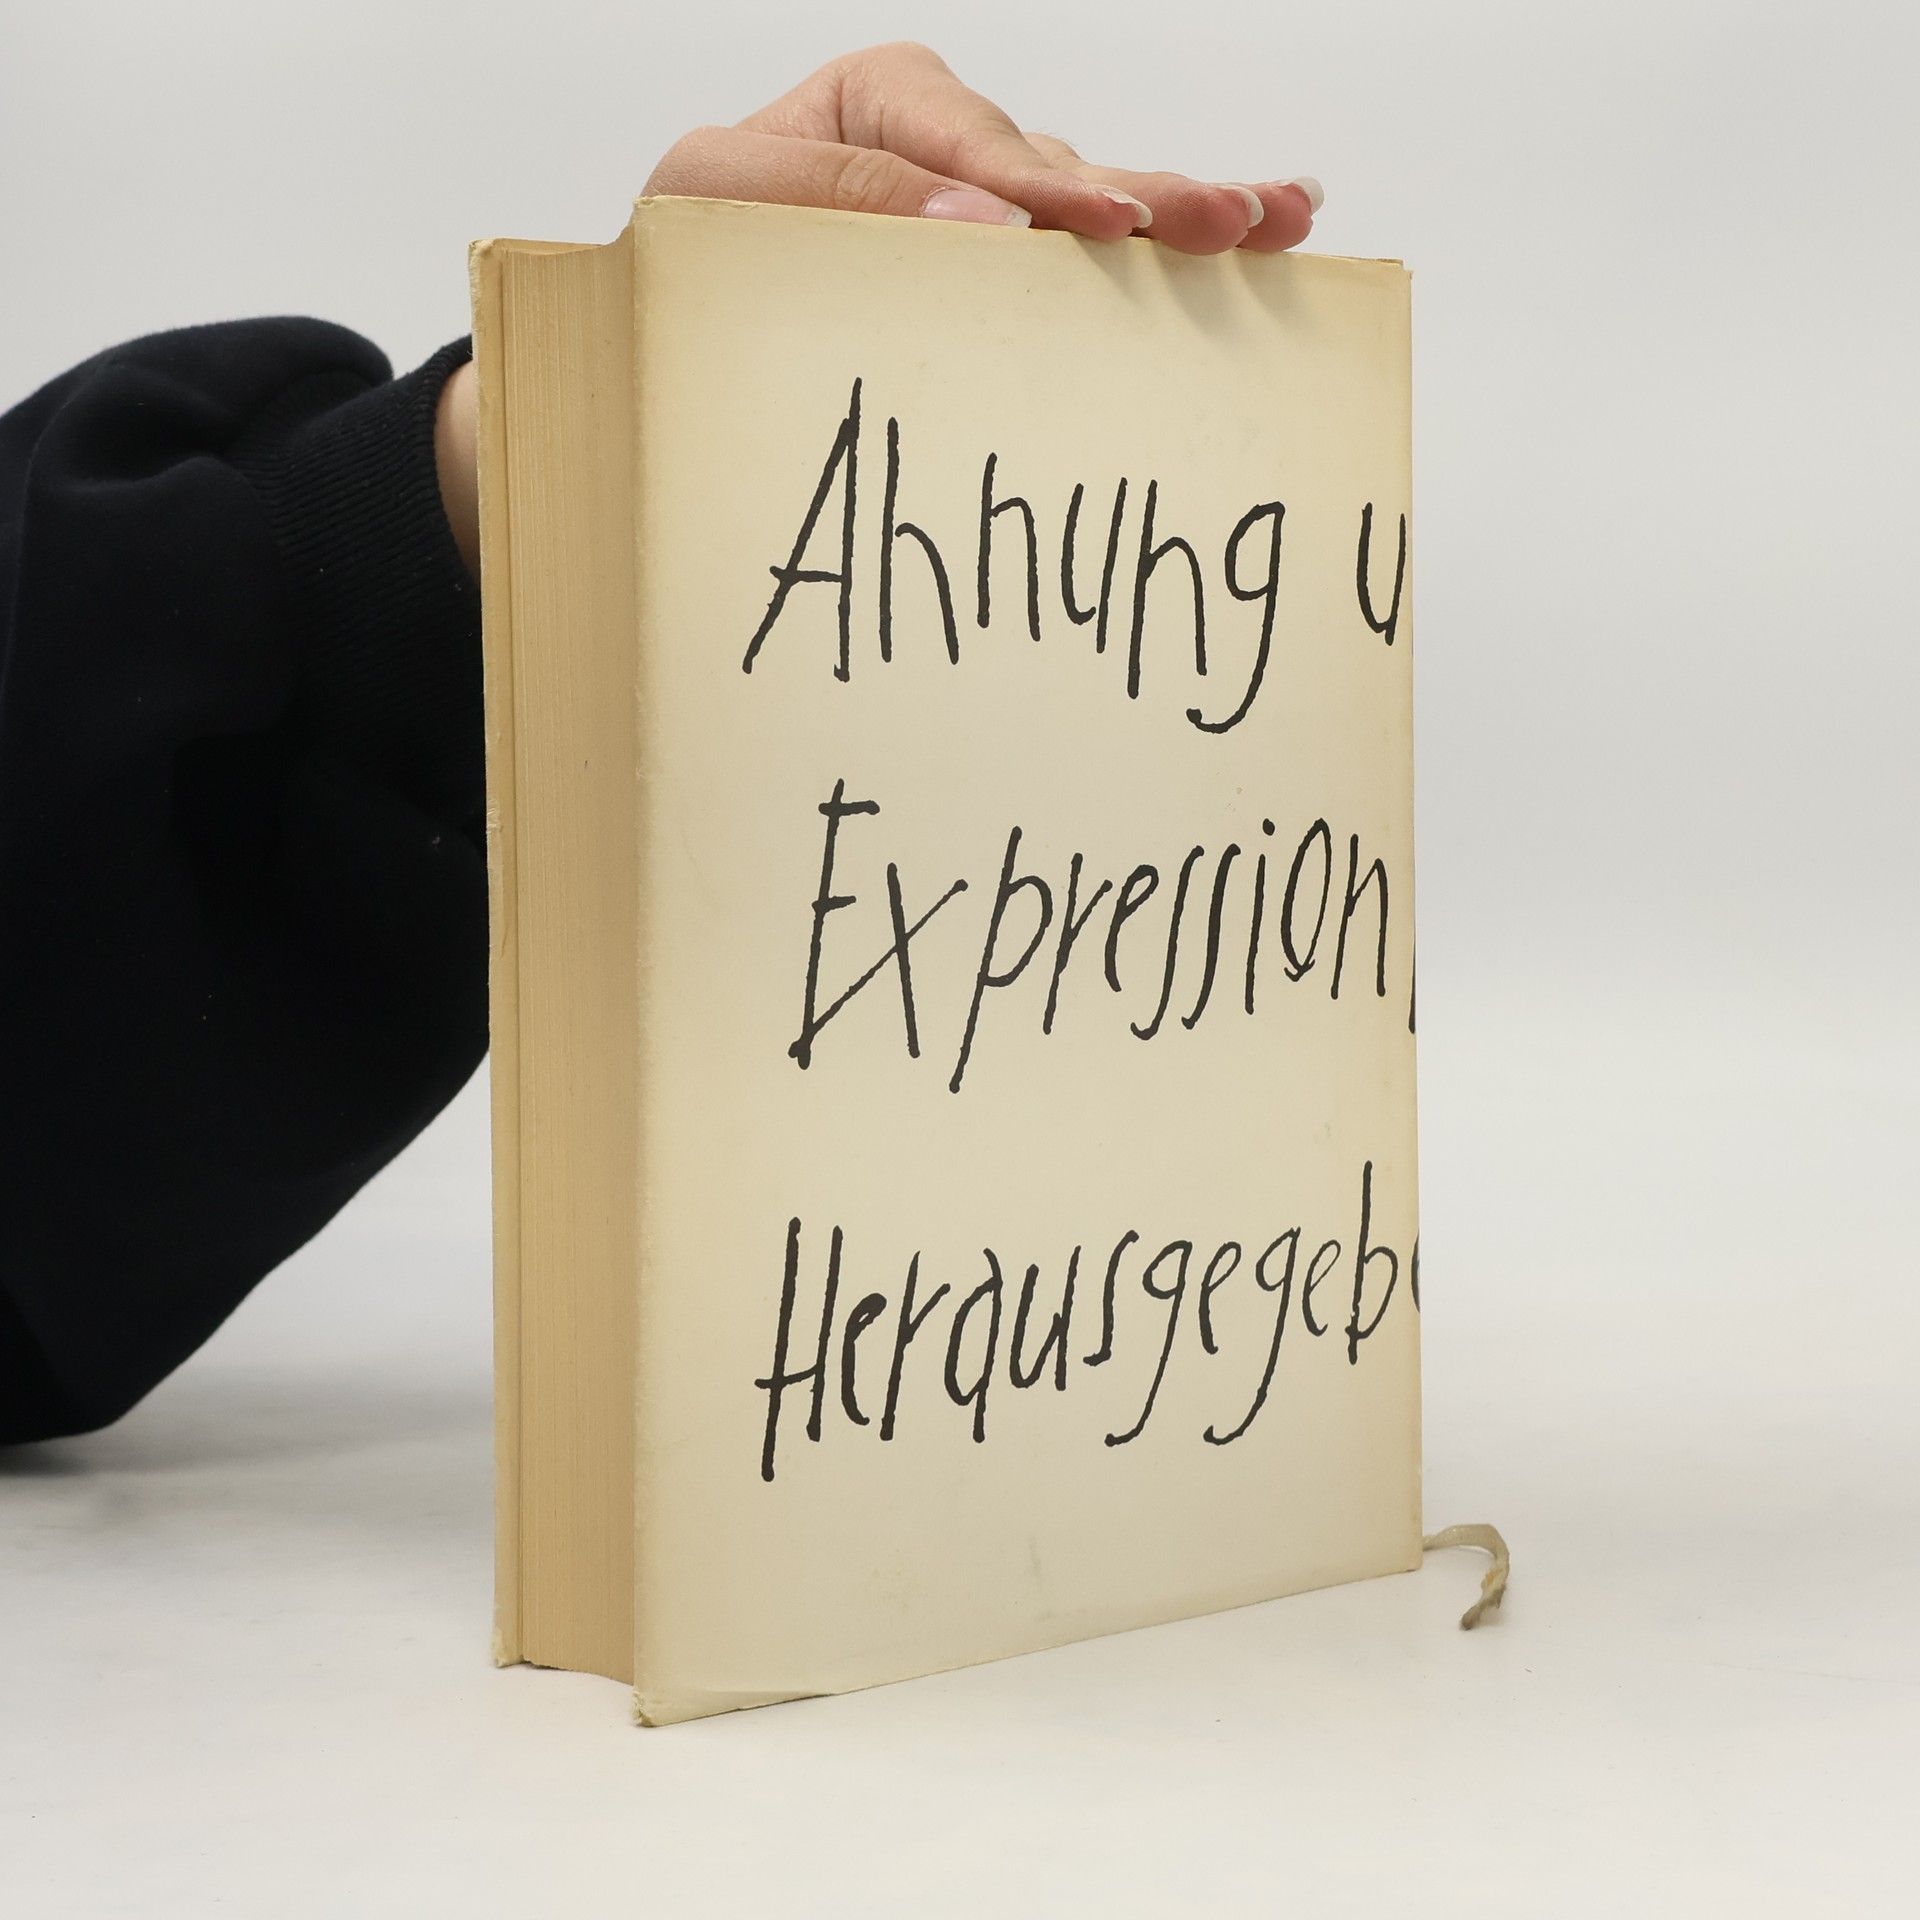 Ahnung u
Expression
Herausgegebe